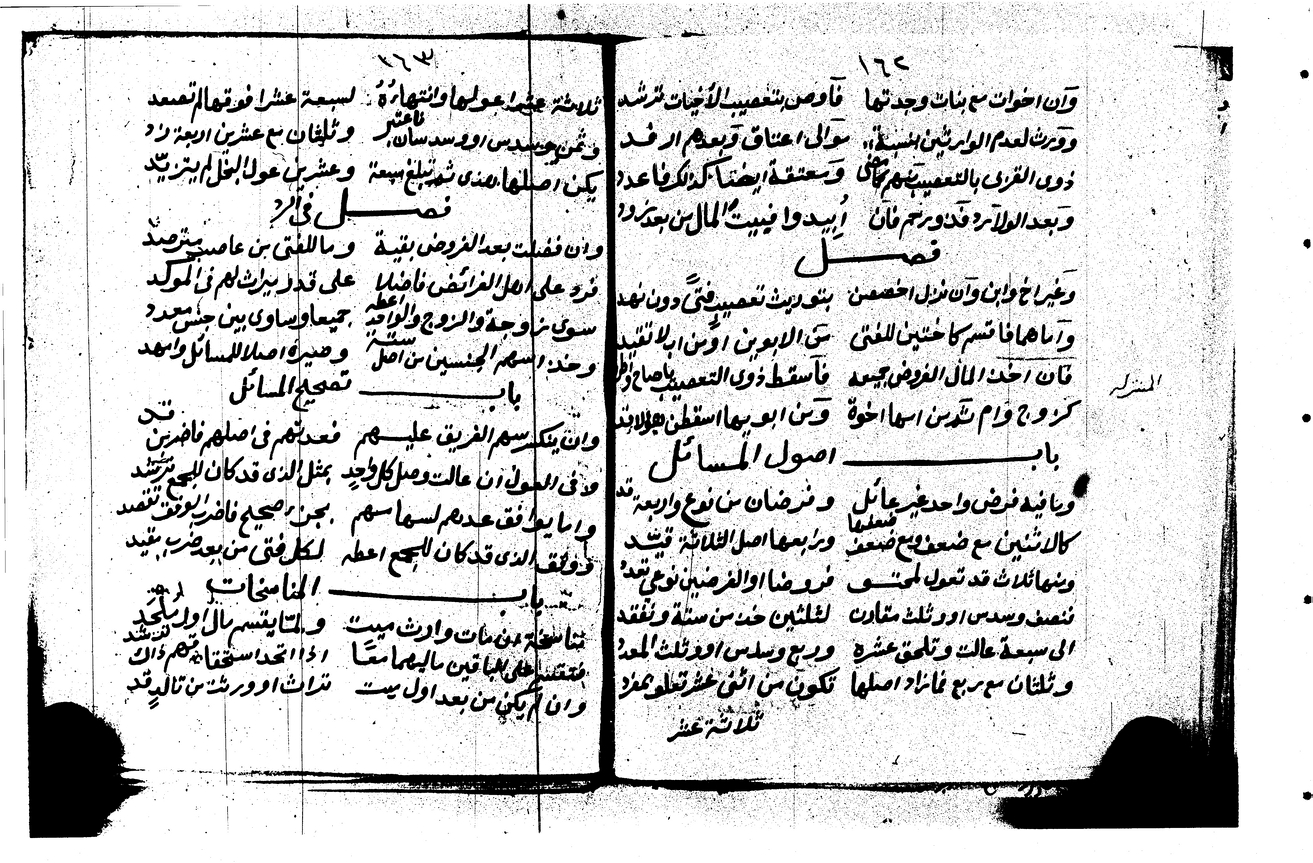 ١٦٢
وان اخوات مع بنات وجدتها فاوص بتعصيب الأخيات ترشد
وورث لعدم الوارثين بنسبة موالى اعتاق وبعدهم ارفد
ذوى القربى بالتعصيب ومعتقة ايضا كذا
وبعد الولا فان أبيدوا فبيت المال من بعد
فصل
وغير اخ وابن وان نزل اخصصن بتوريث تعصيب فتى دون نهد
واماهما فاقسم كاختين للفتى من الابوين او من اب لا تقيد
فان اخذ المال الفروض جميعه فاسقط ذوى التعصيب يا صاح
كزوج وام ثم من امها اخوة ومن ابويها اسقطن
المنزله
باب اصول المسائل
وما فيه فرض واحد غير عائل وفرضان من نوع واربعة قد
كالاثنين مع ضعف وضعف ضعفها ورابعها اصل الثلاثة قيد
ومنها ثلاث قد تعول فروضا او الفرضين نوعى
فنصف وسدس او وثلث مقارن لثلثين خذ من ستة وتفقد
الى سبعة عالت وتلحق عشرة وربع وسدس او وثلث
وثلثان مع ربع فما زاد اصلها تكون من اثنى عشر تعلو بمفرد
ثلاثة عشر
٢٦٣
ثلاثة عشرا عولها وانتهاؤه لسبعة عشرا فوقها لم تصعد
وثمن وسدس او وسدسان فاعتبر وثلثان مع عشرين اربعة زد
يكن اصلها هذى ثم تبلغ سبعة وعشرين عول البخل لم يتزيد
فصل فى الرد
وان فضلت بعد الفروض بقية وما للفتى من عاصب
فرد على اهل الفرائض فاضلا على قدر ميراث لهم فى الموكد
سوى زوجة والزوج والواحد اعطه جميعا وساوى بين جنس معدد
وخذ اسهم الجنسين من اصل ستة وصيره اصلا للمسائل
باب تصحيح المسائل
وان ينكسر سهم الفريق عليهم فعدتهم فى اصلهم فاضربن قد
ولا فى العول ان عالت وصل كل واحد بمثل الذى قد كان للجمع ترشد
واما يوافق عدهم لسهامهم بجزء صحيح فاضرب الوفق تقصد
ووفق الذى قد كان للجمع اعطه لكل فتى من بعد ضرب
باب المناسخات
مناسخة من مات وارث ميت ولما يقسم مال اول
على الباقين ماليهما معا اذا اتحد استحقاقهم ذاك
وان لم يكن من بعد اول ميت تراث او ورثت من تالد قد